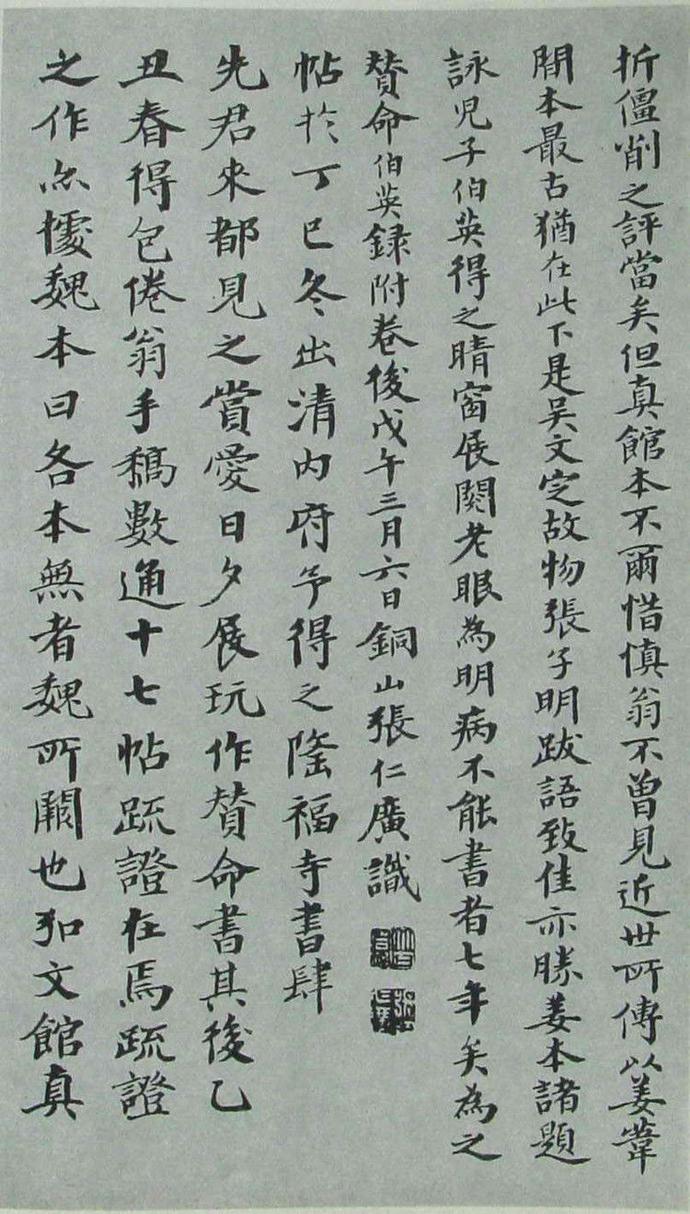 折僵削之評當矣但真館本不爾惜慎翁不曾見近世所傳以姜葦
間本最古猶在此下是吴文定故物張子明跋語致佳亦勝姜本諸題
詠児子伯英得之晴窗展閱老眼為明病不能書者七年矣為之
賛命伯英録附卷後戊午三月六日銅山張仁廣識
帖於丁巳冬出清内府予得之隆福寺書肆
先君来都見之賞愛日夕展玩作賛命書其後乙
丑春得包倦翁手稿數通十七帖疏證在焉疏證
之作亦據魏本曰各本無者魏所闕也弘文館真